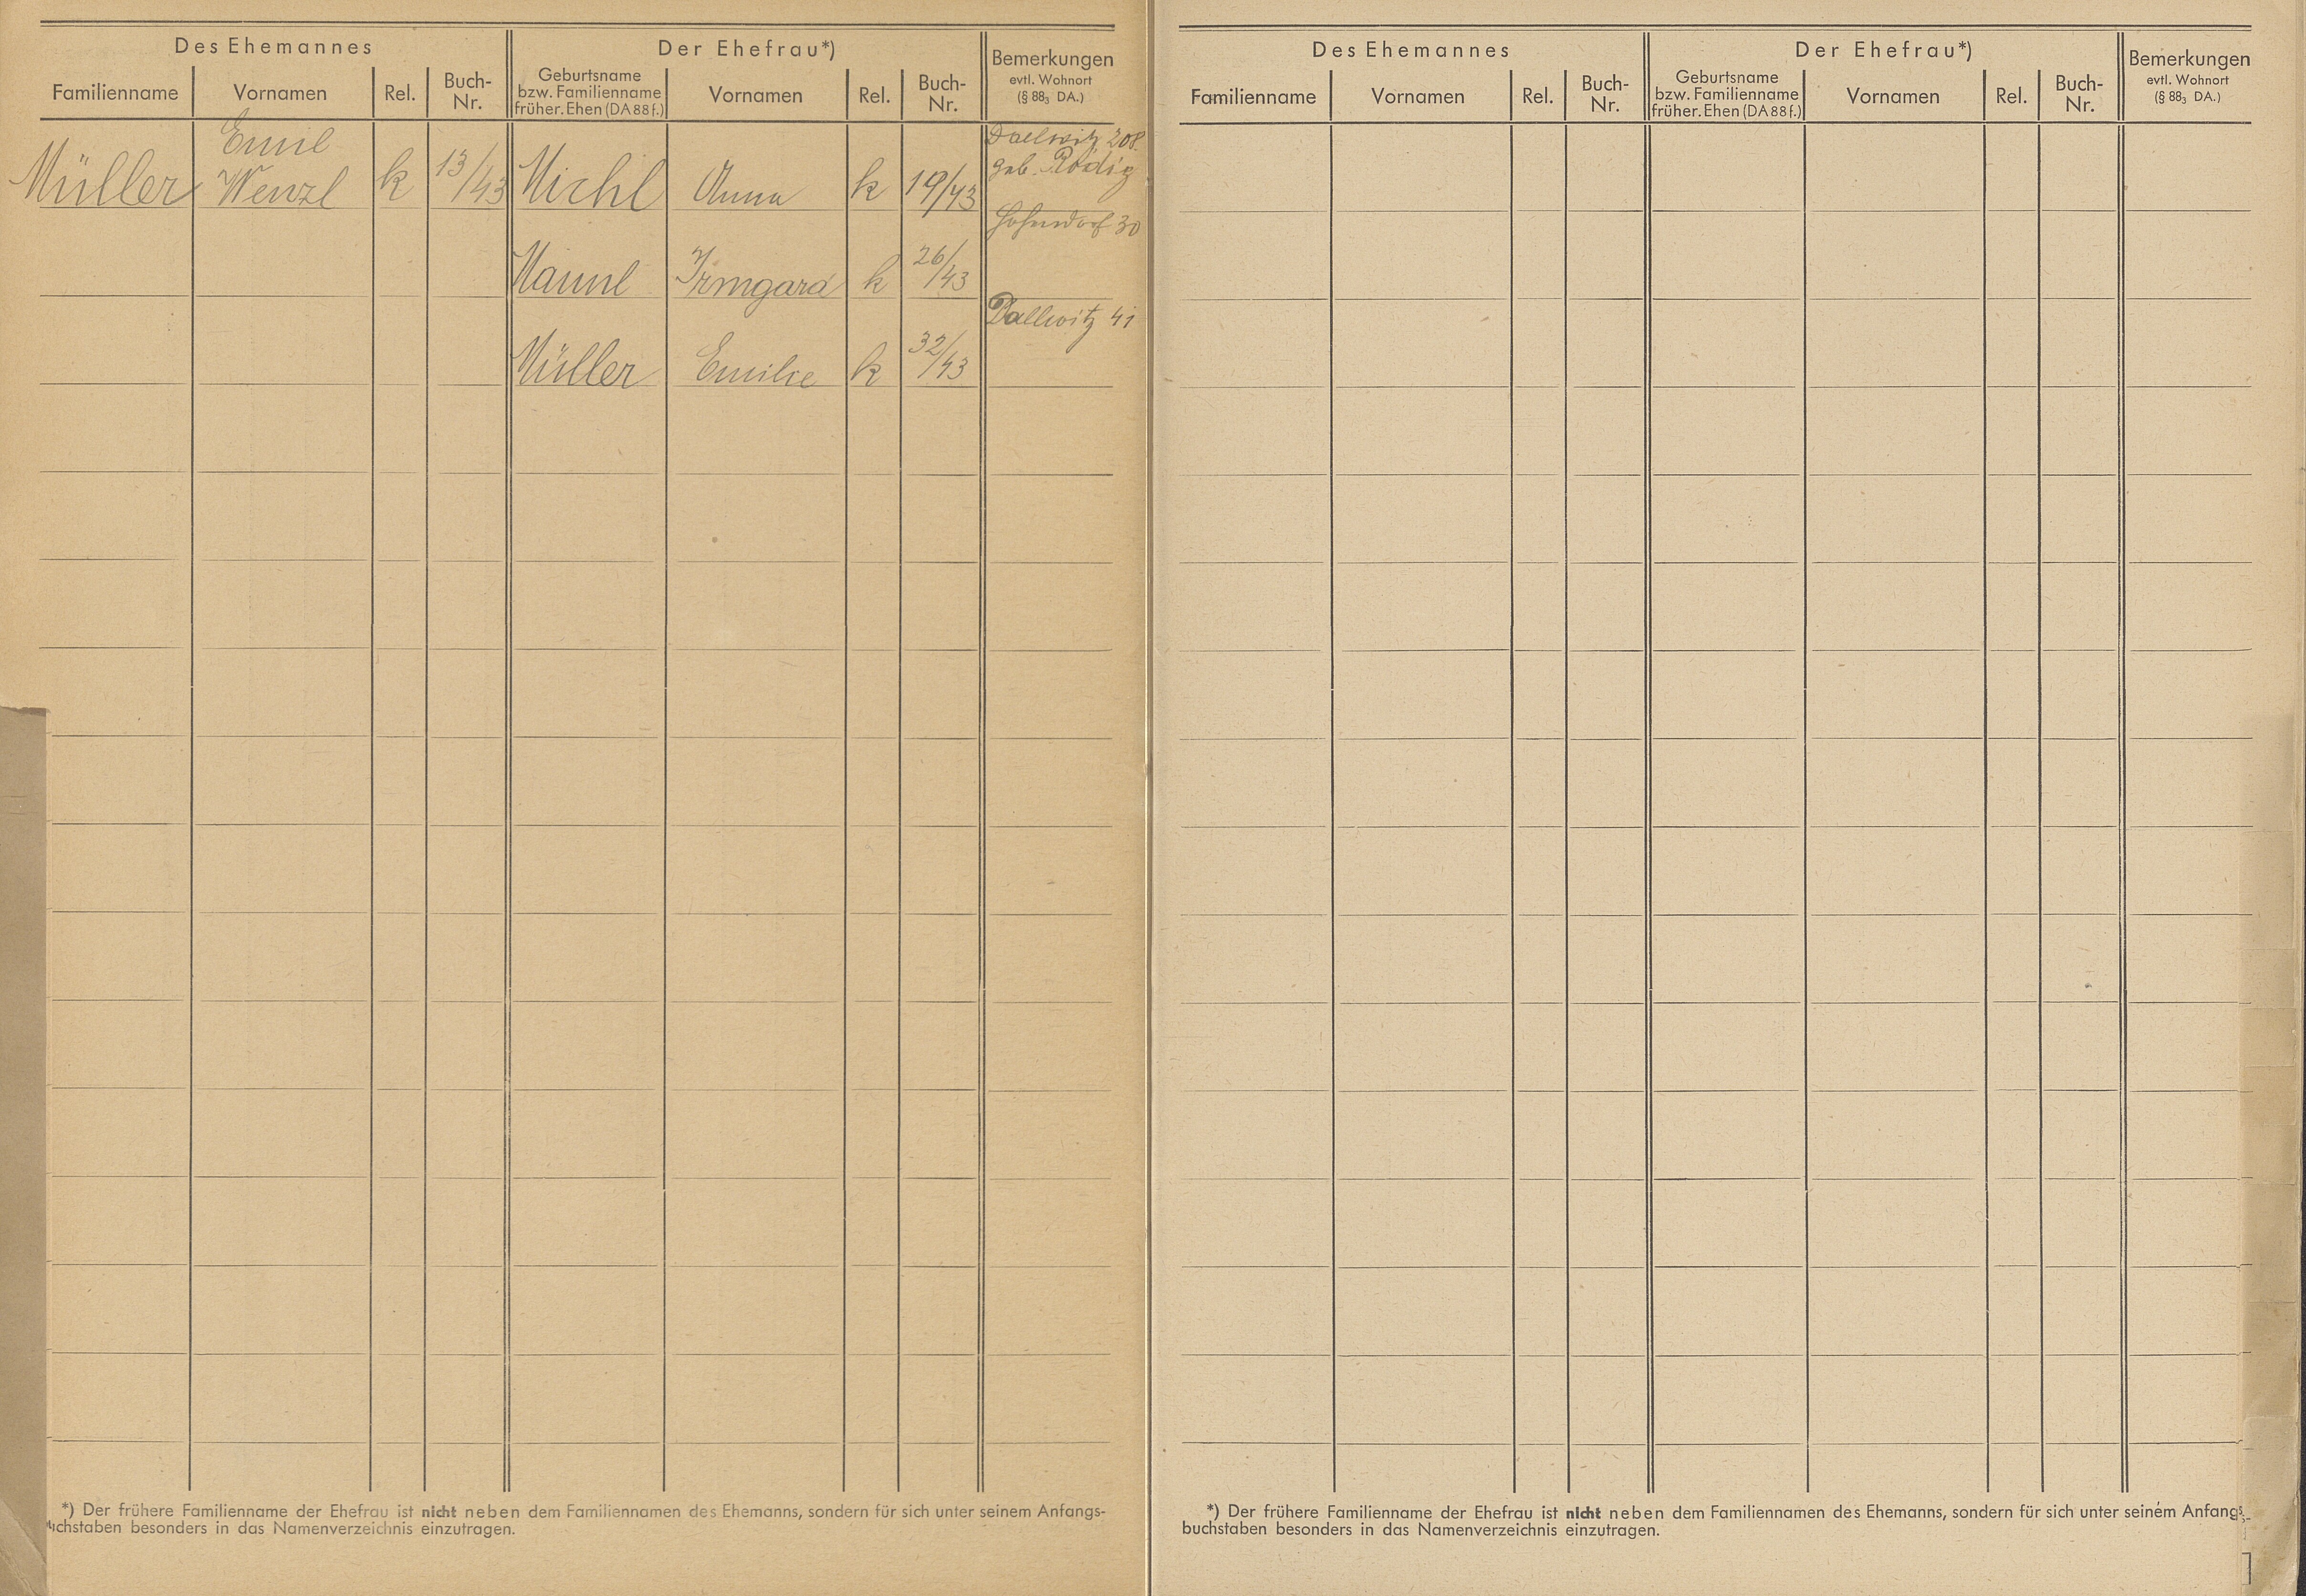 Des Ehemannes Der Ehefrau*) Bemerkungen
evtl. Wohnort
(§ 88₃ DA.)
Familienname Vornamen Rel. Buch-Nr. Geburtsname bzw. Familienname früher. Ehen (DA 88 f.) Vornamen Rel. Buch-Nr.
Müller Emil Wenzl k 13/43 Michl Anna k 19/43 Dallwitz 208. geb. Rödig
Mannl Irmgard k 26/43 Hohndorf 30
Müller Emilie k 32/43 Dallwitz 41
*) Der frühere Familienname der Ehefrau ist nicht neben dem Familiennamen des Ehemanns, sondern für sich unter seinem Anfangs-
uchstaben besonders in das Namenverzeichnis einzutragen.
Des Ehemannes Der Ehefrau*) Bemerkungen
evtl. Wohnort
(§ 88₃ DA.)
Familienname Vornamen Rel. Buch-Nr. Geburtsname bzw. Familienname früher. Ehen (DA 88 f.) Vornamen Rel. Buch-Nr.
*) Der frühere Familienname der Ehefrau ist nicht neben dem Familiennamen des Ehemanns, sondern für sich unter seinem Anfangs-
buchstaben besonders in das Namenverzeichnis einzutragen.